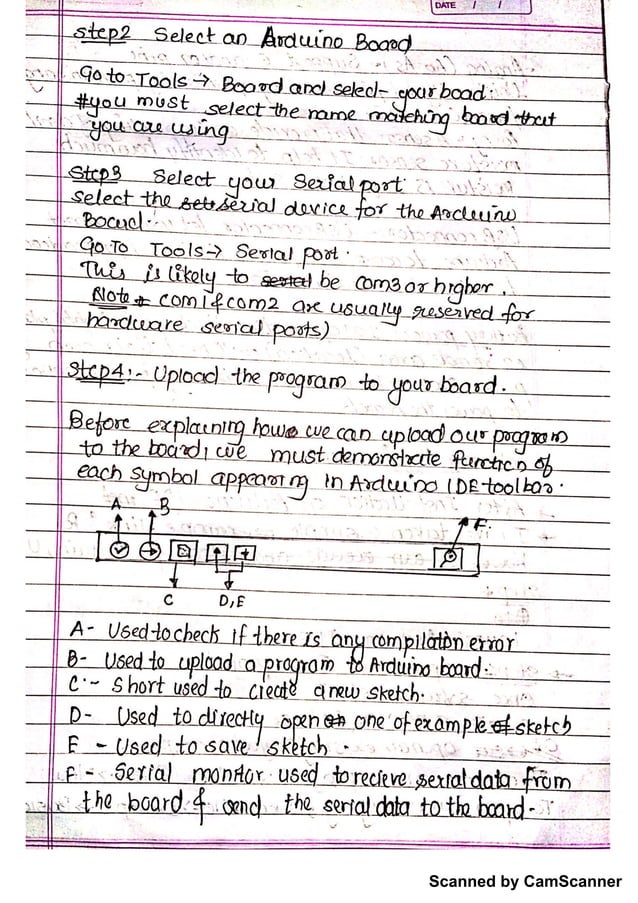 DATE / /
step2 Select an Arduino Board
Go to Tools → Board and select your boad:
#you must select the name matching board that
you are using
Step3 Select your Serial port
select the serial device for the Arduino
Board.
Go To Tools → Serial port.
This is likely to be com3 or higher.
Note com1 & com2 are usually reserved for
hardware serial ports)
Step4:- Upload the program to your board.
Before explaining how we can upload our program
to the board, we must demonstrate function of
each symbol appearing in Arduino IDE toolbar.
A B F.
C D,E
A- Used to check if there is any compilation error
B- Used to upload a program to Arduino board.
C:- Short used to create a new sketch.
D- Used to directly open one of example sketch
E - Used to save sketch -
F - Serial monitor used to recieve serial data from
the board & send the serial data to the board-
Scanned by CamScanner